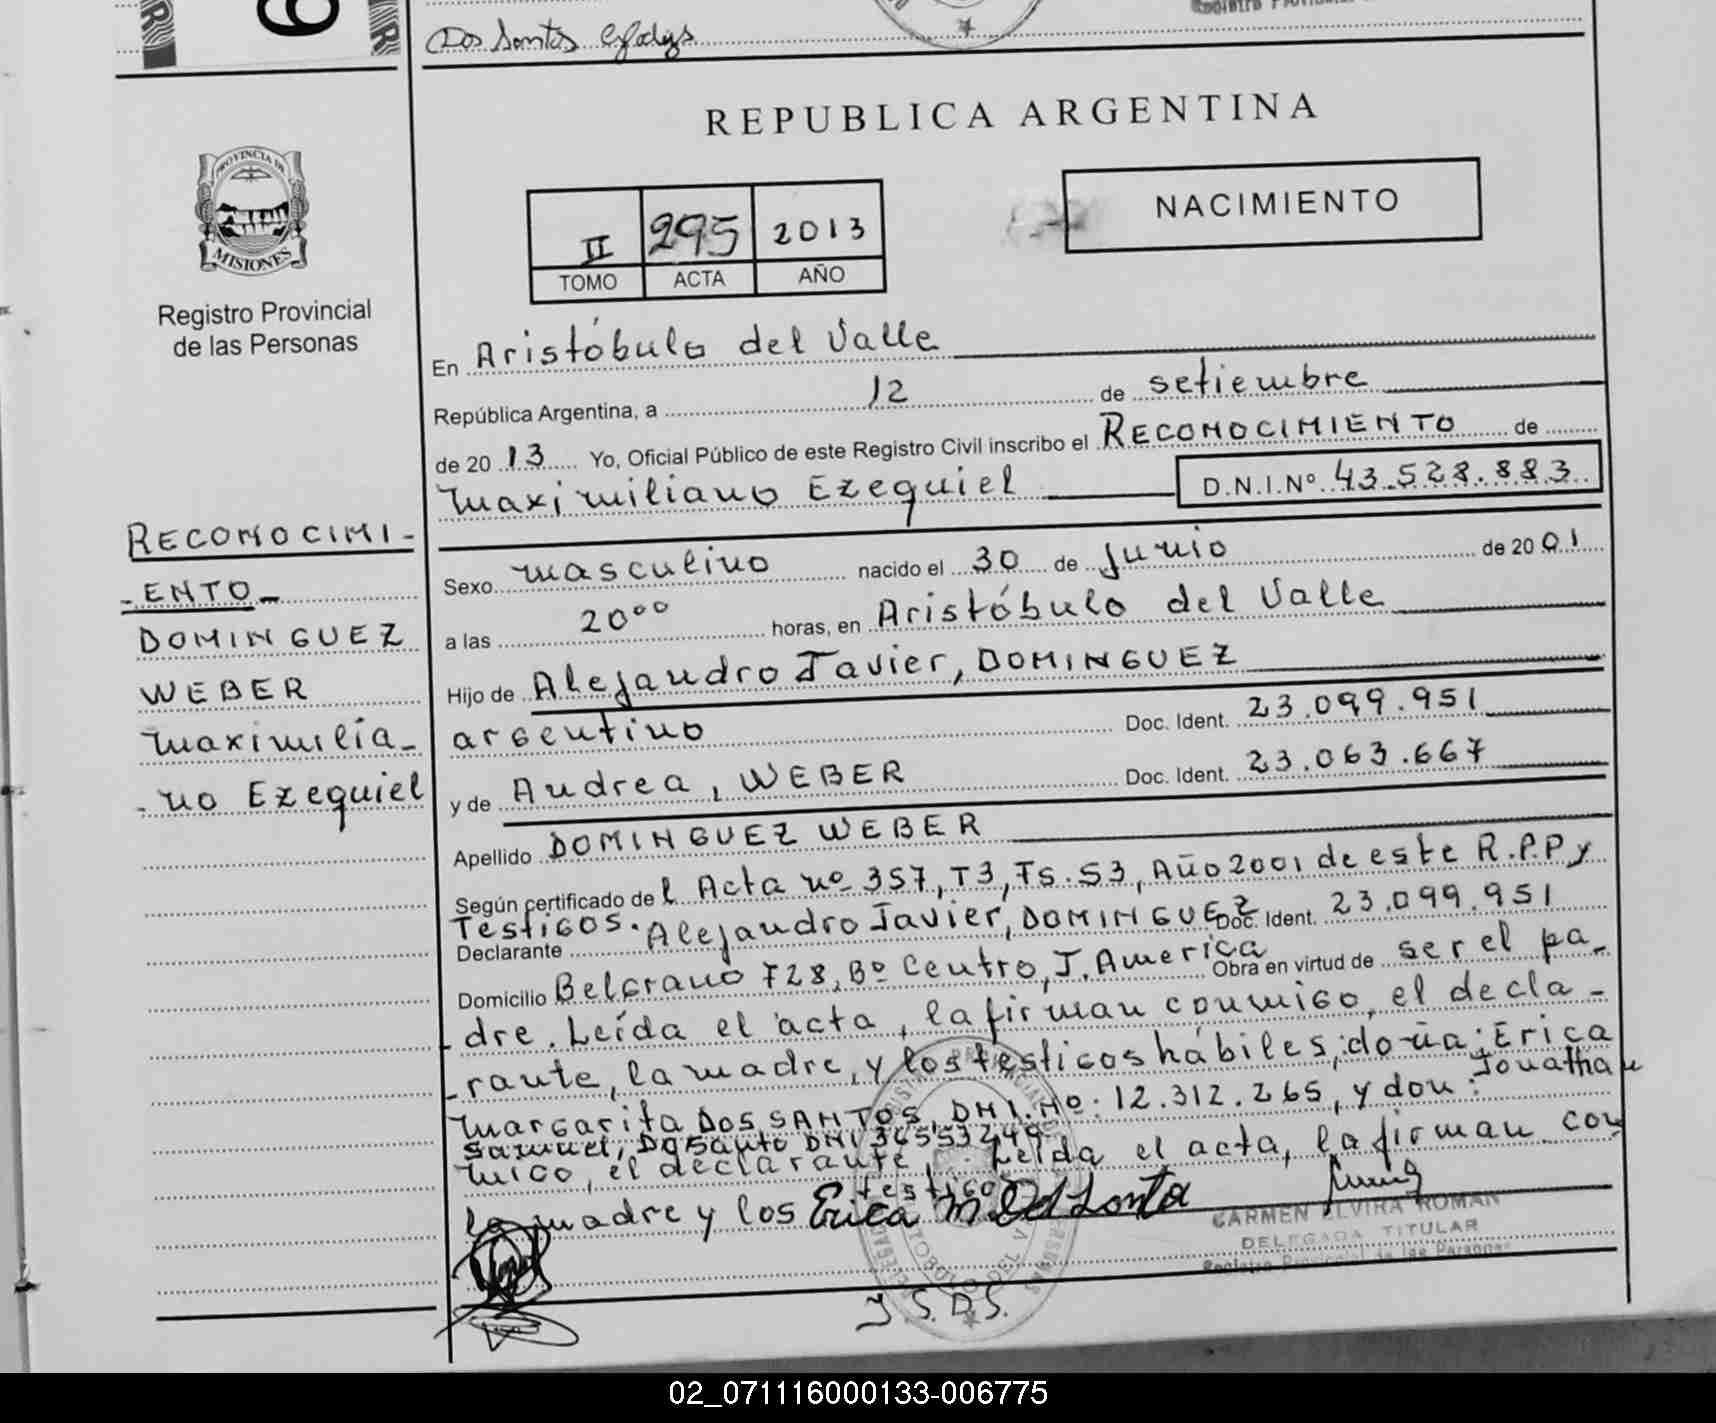 Dos Santos Gladys
REPUBLICA ARGENTINA
PROVINCIA DE
MISIONES
Registro Provincial
de las Personas
NACIMIENTO
II 295 2013
TOMO ACTA AÑO
En Aristóbulo del Valle
República Argentina, a 12 de setiembre
de 20 13 Yo, Oficial Público de este Registro Civil inscribo el RECONOCIMIENTO de
Maximiliano Ezequiel D.N.I.Nº 43.528.883
RECONOCIMI-
-ENTO-
DOMINGUEZ
WEBER
Maximilia-
-no Ezequiel
Sexo masculino nacido el 30 de Junio de 20 01
a las 20⁰⁰ horas, en Aristóbulo del Valle
Hijo de Alejandro Javier, DOMINGUEZ
argentino Doc. Ident. 23.099.951
y de Andrea, WEBER Doc. Ident. 23.063.667
Apellido DOMINGUEZ WEBER
Según certificado de l Acta nº 357, T3, Fs. 53, Año 2001 de este R.P.P y
Testigos. Declarante Alejandro Javier, DOMINGUEZ Doc. Ident. 23.099.951
Domicilio Belgrano 728, Bº Centro, J. America Obra en virtud de ser el pa-
dre. Leída el acta, la firman conmigo, el decla-
-rante, la madre, y los testigos hábiles, doña: Erica
Margarita DOS SANTOS, DNI.Nº: 12.312.265, y don: Jonathan
Samuel, Do Santo DNI 36553249 Leída el acta, la firman con
migo, el declarante,
la madre y los testigos
Erica M Dos Santo
CARMEN ELVIRA ROMAN
DELEGADA TITULAR
Registro Provincial de las Personas
J S. D. S.
02_071116000133-006775